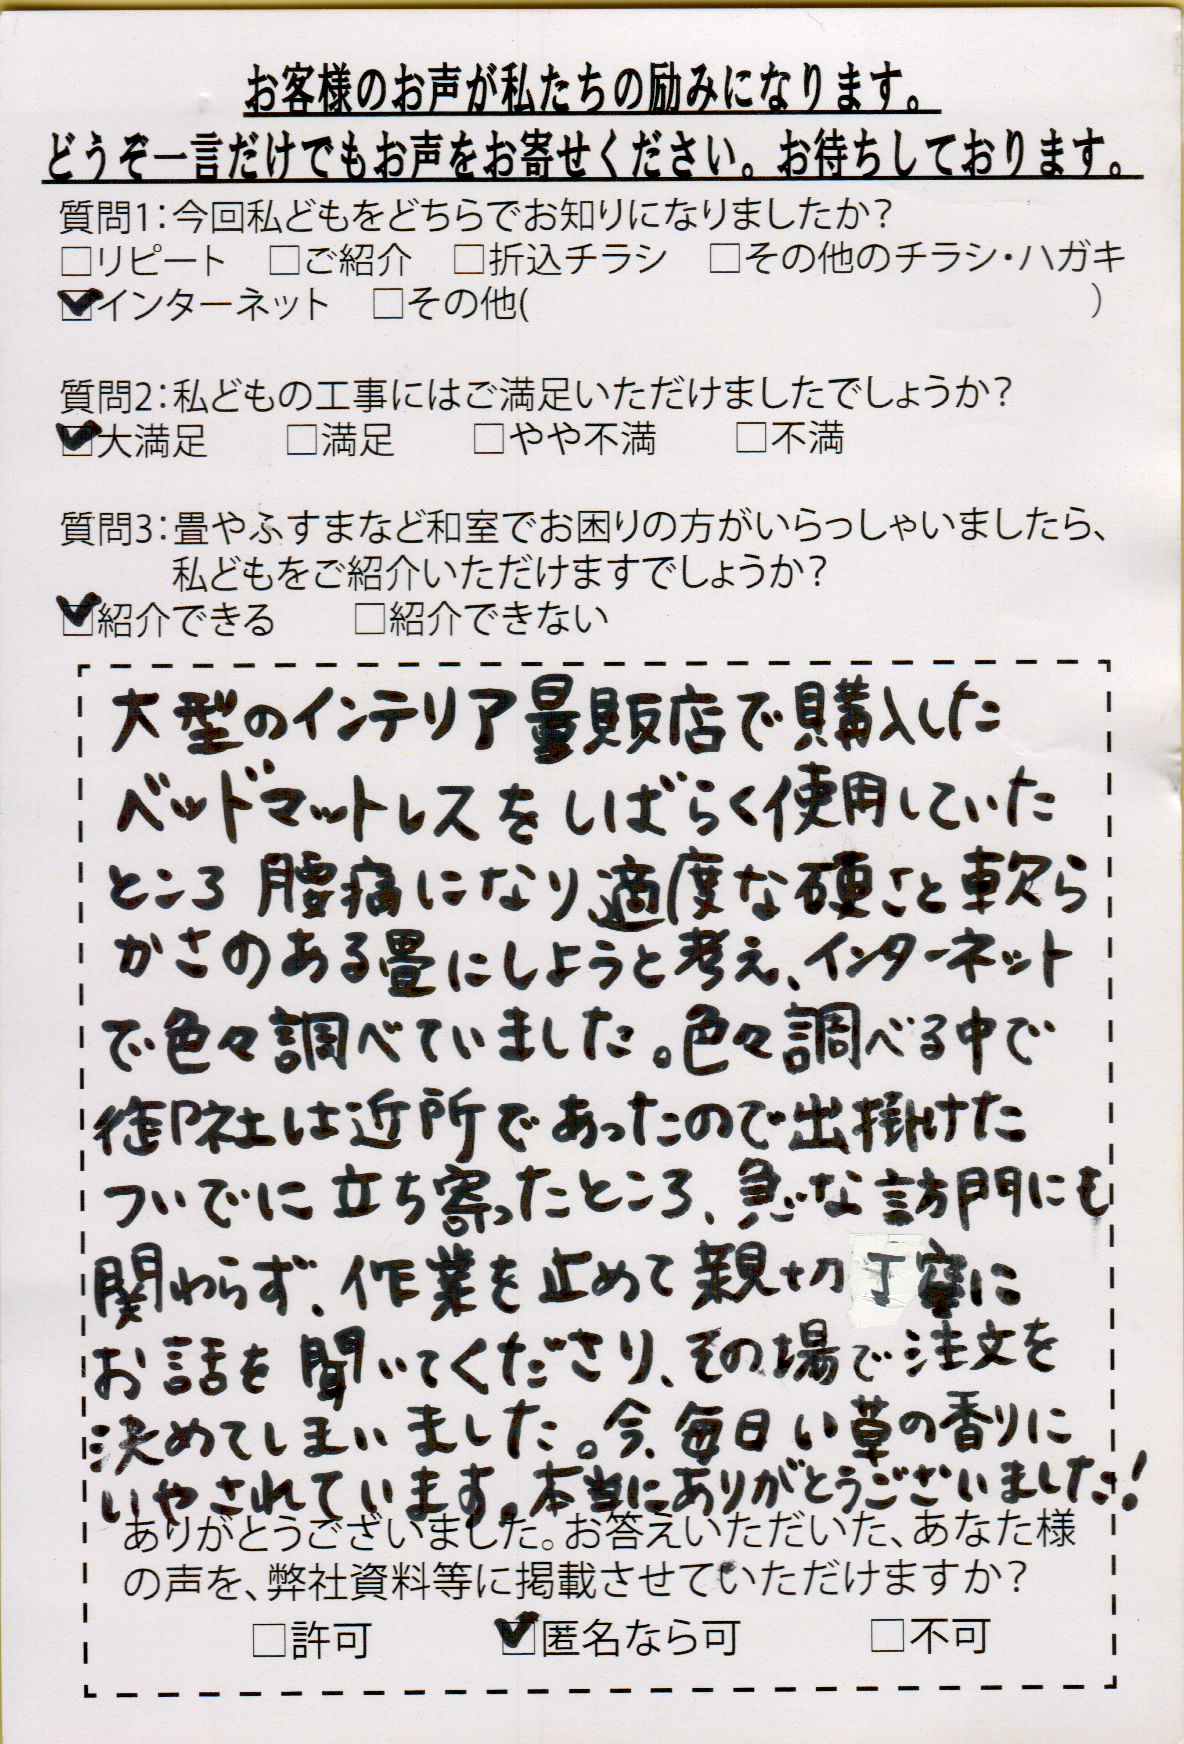 お客様のお声が私たちの励みになります。
どうぞ一言だけでもお声をお寄せください。お待ちしております。
質問1:今回私どもをどちらでお知りになりましたか?
□リピート □ご紹介 □折込チラシ □その他のチラシ・ハガキ
☑インターネット □その他( )
質問2:私どもの工事にはご満足いただけましたでしょうか?
☑大満足 □満足 □やや不満 □不満
質問3:畳やふすまなど和室でお困りの方がいらっしゃいましたら、
私どもをご紹介いただけますでしょうか?
☑紹介できる □紹介できない
大型のインテリア量販店で購入した
ベッドマットレスをしばらく使用していた
ところ腰痛になり適度な硬さと軟ら
かさのある畳にしようと考え、インターネット
で色々調べていました。色々調べる中で
御社は近所であったので出掛けた
ついでに立ち寄ったところ、急な訪問にも
関わらず、作業を止めて親切丁寧に
お話を聞いてくださり、その場で注文を
決めてしまいました。今、毎日い草の香りに
いやされています。本当にありがとうございました!
ありがとうございました。お答えいただいた、あなた様
の声を、弊社資料等に掲載させていただけますか?
□許可 ☑匿名なら可 □不可